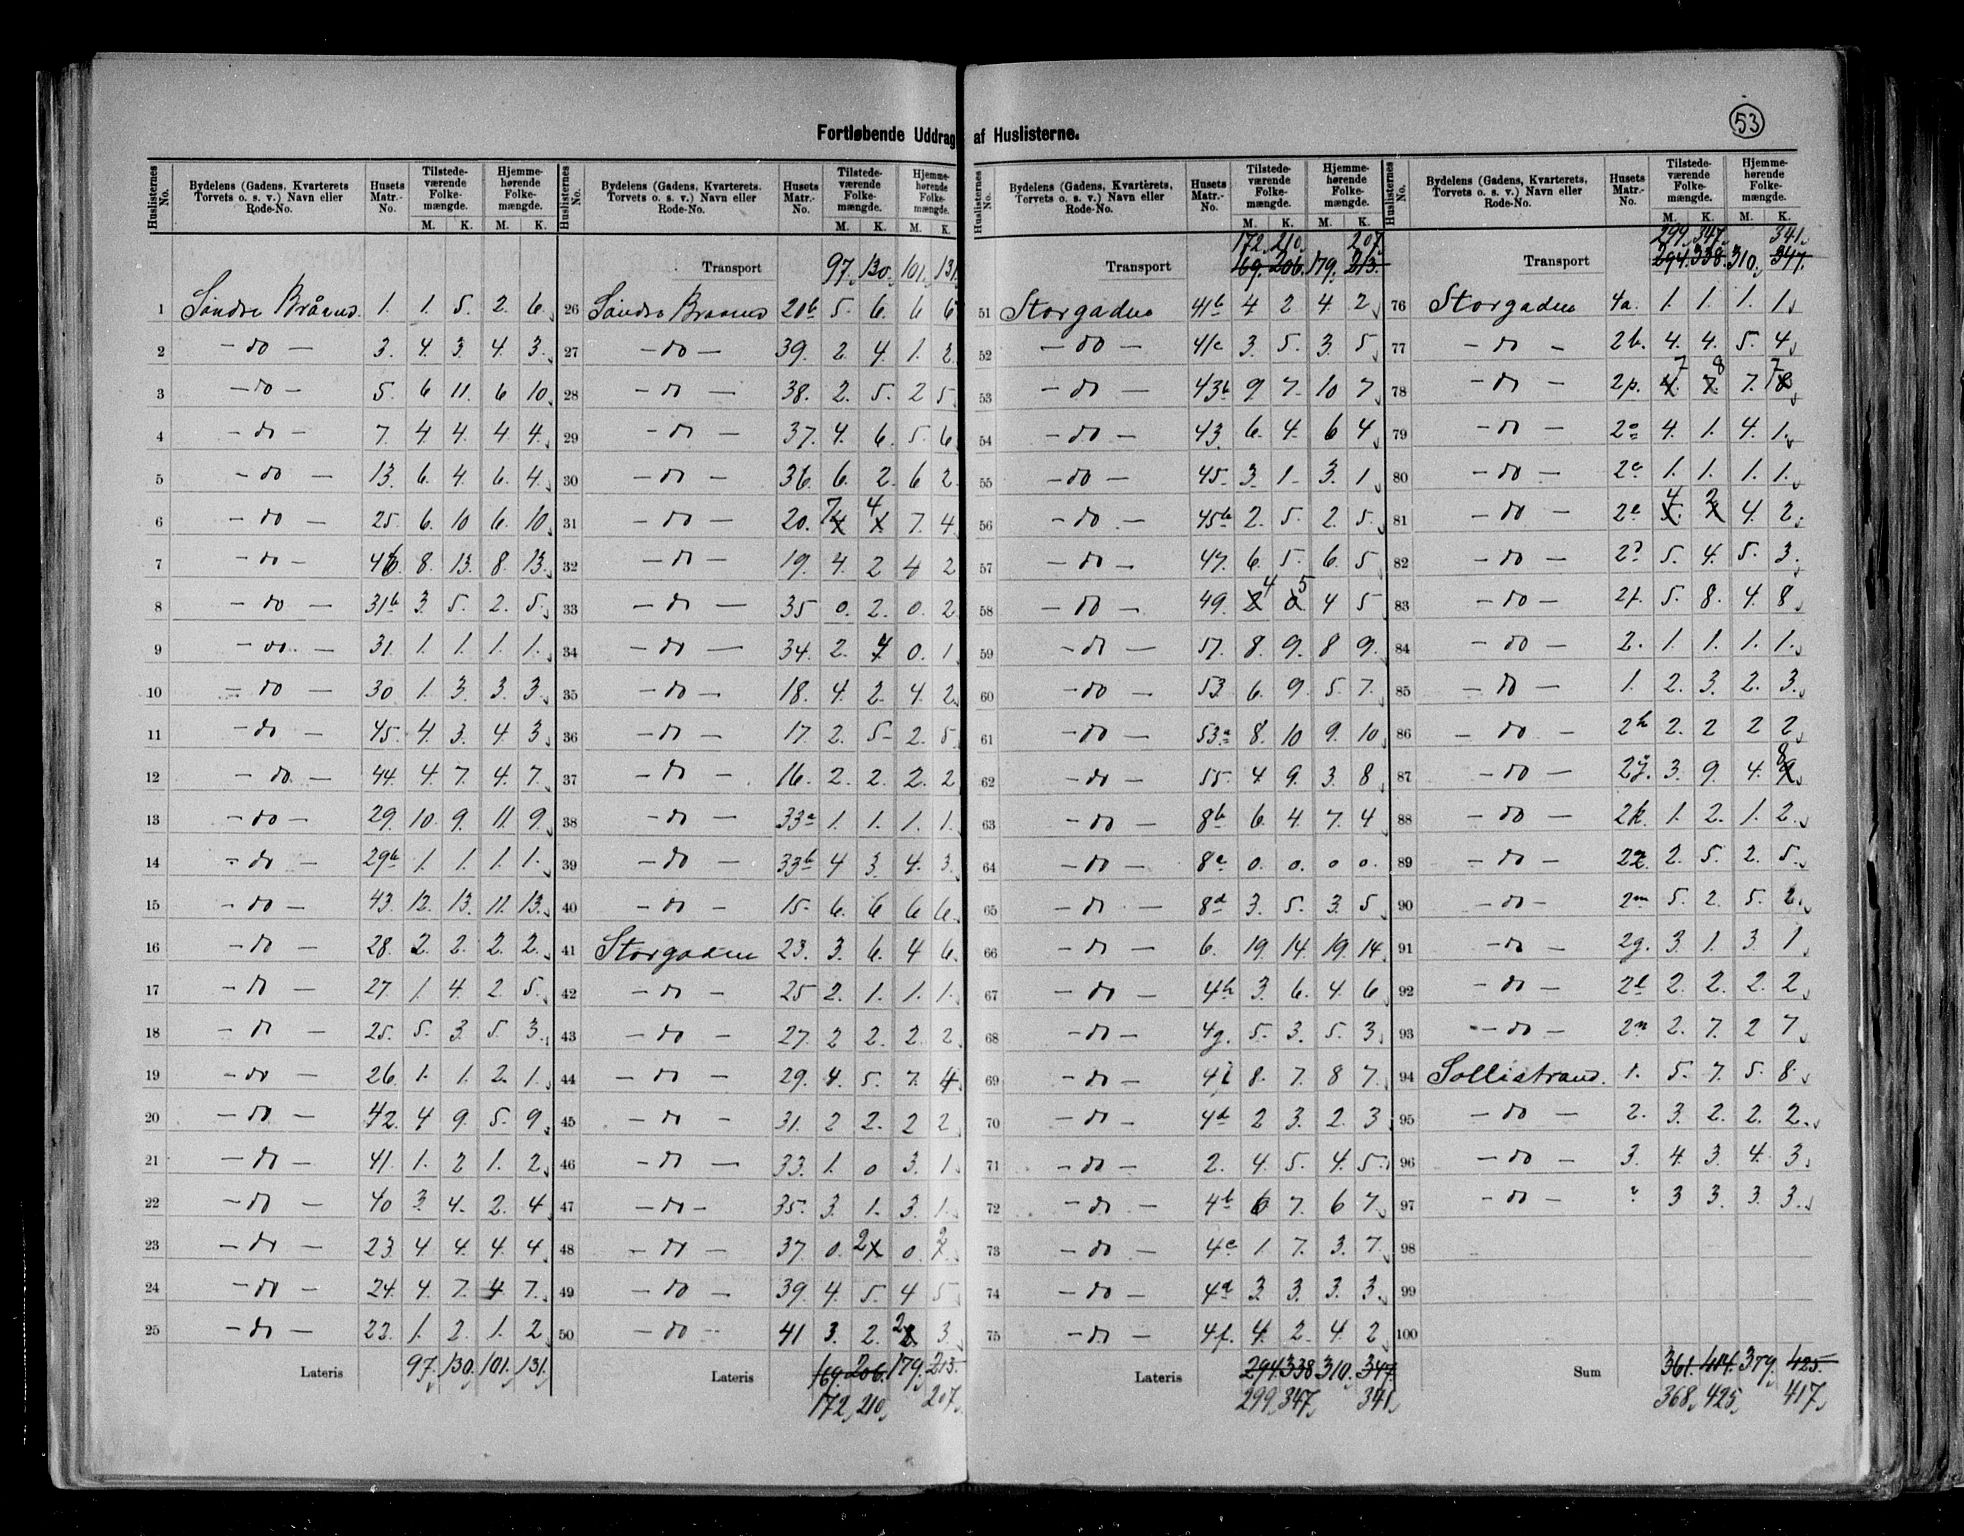 53
Fortløbende Uddrag af Huslisterne.
Huslisternes No. | Bydelens (Gadens, Kvarterets Torvets o. s. v.) Navn eller Rode-No. | Husets Matr.-No. | Tilstedeværende Folkemængde. M. K. | Hjemmehørende Folkemængde. M. K.
1 Søndre Braaens 1. 1. 5. 2. 6.
2 - do - 3. 4. 3. 4. 3.
3 - do - 5. 6 11. 6 10.
4 - do - 7. 4 4. 4. 4.
5 - do - 13. 6. 4. 6. 4.
6 - do - 25. 6. 10 6. 10.
7 - do - 46. 8. 13. 8. 13.
8 - do - 31b 3. 5. 2. 5.
9 - do - 31. 1. 1. 1. 1.
10 - do - 30 1. 3. 3. 3.
11 - do - 45. 4. 3. 4. 3
12 - do - 44. 4. 7. 4. 7.
13 - do - 29. 10. 9. 11. 9.
14 - do - 29b 1. 1. 1. 1.
15 - do - 43. 12. 13. 11. 13.
16 - do - 28. 2. 2. 2. 2.
17 - do - 27. 1. 4. 2. 5.
18 - do - 25. 5. 3. 5. 3.
19 - do - 26. 1. 1. 2. 1.
20 - do - 42. 4 9. 5. 9.
21 - do - 41. 1. 2 1. 2.
22 - do - 40 3. 4. 2. 4
23 - do - 23 4. 4. 4. 4
24 - do - 24. 4. 7. 4. 7.
25 - do - 22. 1. 2. 1. 2
Lateris 97. 130. 101. 131.
Transport 97. 130. 101. 131.
26 Søndre Braaens 20b 5. 6. 6 6
27 - do - 39. 2. 4. 1. 2.
28 - do - 38. 2. 5. 2 5.
29 - do - 37. 4. 6. 5. 6
30 - do - 36. 6. 2. 6 2.
31 - do - 20. 7 4 7. 4.
32 - do - 19. 4. 2 4 2
33 - do - 35 0. 2. 0. 2
34 - do - 34. 2. 0. 1.
35 - do - 18. 4. 2. 4. 2
36 - do - 17. 2. 5- 2. 5.
37 - do - 16. 2. 2. 2. 2
38 - do - 33a 1. 1. 1. 1.
39 - do - 33b 4 3. 4. 3.
40 - do - 15- 6. 6 6 6.
41 Storgaden 23. 3. 6. 4 6.
42 - do - 25 2. 1. 1. 1.
43 - do - 27. 2 2. 2. 2
44 - do - 29. 4. 5. 7. 4
45 - do - 31. 2 2. 2 2
46 - do - 33. 1. 0 3. 1.
47 - do - 35. 3. 1. 3. 1.
48 - do - 37. 0. 2 0. 2
49 - do - 39. 4. 5. 4 5
50 - do - 41 3. 2. 2 3.
Lateris 169. 206. 179. 213.
172. 210. 207.
172. 210. 207.
Transport 169. 206. 179. 213.
51 Storgaden 41b 4 2 4 2
52 - do - 41c 3. 5. 3. 5
53 - do - 43b 9 7. 10 7
54 - do - 43. 6. 4. 6 4
55 - do - 45. 3. 1. 3. 1
56 - do - 45b 2. 5. 2. 5.
57 - do - 47. 6. 5. 6. 5
58 - do - 49. 4 5 4 5
59 - do - 51. 8. 9. 8 9.
60 - do - 53 6. 9. 5. 7.
61 - do - 53a 8. 10 9. 10
62 - do - 55. 4 9. 3. 8
63 - do - 8b 6. 4. 7. 4
64 - do - 8c 0. 0. 0 0.
65 - do - 8d 3. 5. 3. 5
66 - do - 6. 19. 14. 19. 14
67 - do - 4h 3. 6. 4. 6
68 - do - 4g. 5. 3. 5. 3
69 - do - 4i 8. 7. 8 7.
70 - do - 4d 2 3. 2. 3
71 - do - 2. 4. 5. 4. 5.
72 - do - 4b 6 7. 6 7.
73 - do - 4c 1. 7. 3. 7.
74 - do - 4d 3. 3. 3. 3.
75 - do - 4f. 4. 2. 4. 2
Lateris 294. 338. 310. 347.
299. 347. 341.
299. 347. 341.
Transport 294. 338. 310. 347.
76 Storgaden 4a. 1. 1. 1. 1.
77 - do - 2b. 4. 4. 5. 4.
78 - do - 2p. 7 8 7. 7
79 - do - 2o 4. 1. 4. 1.
80 - do - 2c 1. 1. 1. 1.
81 - do - 2e 4 2 4. 2.
82 - do - 5. 4. 5. 3.
83 - do - 2f. 5. 8. 4. 8.
84 - do - 2. 1. 1. 1. 1.
85 - do - 1. 2. 3. 2. 3.
86 - do - 2h 2. 2 2 2
87 - do - 3. 9. 4. 8
88 - do - 2k. 1. 2. 1. 2.
89 - do - 2. 5. 2. 5.
90 - do - 2m 5. 2. 5. 2.
91 - do - 2g. 3. 1. 3. 1
92 - do - 2l 2. 2. 2. 2
93 - do - 2n 2. 7. 2 7
94 Sollistrand. 1. 5. 7. 5. 8.
95 - do - 2. 3. 2. 2. 2.
96 - do - 3. 4. 3. 4. 3
97 - do - ? 3 3. 3. 3.
98
99
100
Sum 361. 414. 379. 425.
368. 425. 417.